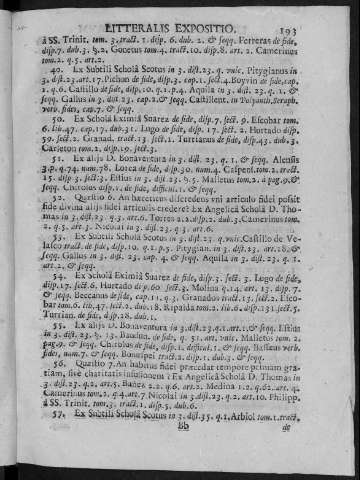 LITTERALIS EXPOSITIO. 193
à SS. Trinit. tom. 3. tract. 1. disp. 6. dub. 2. & seqq. Ferreras de fide,
disp. 7. dub. 3. §. 2. Gonetus tom. 4. tract. 10. disp. 8. art. 2. Camerinus
tom. 2. q. 5. art. 2.
40. Ex Subtili Scholâ Scotus in 3. dist. 23. q. vnic. Pitygianus in
3. dist. 23. art. 17. Pichon de fide, disp. 3. cap. 1. sect. 4. Boyvin de fide, cap.
1. q. 6. Castillo de fide, disp. 10. q. 1. p. 4. Aquila in 3. dist. 23. q. 1. &
seqq. Gallus in 3. dist. 23. cap. 2. & seqq. Castillent. in Polyanth. Seraph.
verb. fides, cap. 7. & seqq.
50. Ex Scholâ Eximiâ Suarez de fide, disp. 7. sect. 9. Escobar tom.
6. lib. 47. cap. 17. dub. 31. Lugo de fide, disp. 17. sect. 2. Hurtado disp.
59. sect. 2. Granad. tract. 13. sect. 11. Turrianus de fide, disp. 43. dub. 3.
Carleton tom. 2. disp. 19. sect. 3.
51. Ex alijs D. Bonaventura in 3. dist. 23. q. 1. & seqq. Alensis
3. p. q. 74. num. 78. Lorca de fide, disp. 30. num. 4. Caspens. tom. 2. tract.
15. disp. 3. sect. 3. Estius in 3. dist. 23. §. 5. Malletus tom. 2. à pag. 9. &
seqq. Chirolus disp. 1. de fide, difficult. 1. & seqq.
52. Quæstio 6. An hæreticus discredens vni articulo fidei possit
fide divina alijs fidei articulis credere? Ex Angelicâ Scholâ D. Thomas
in 3. dist. 23. q. 3. art. 6. Torres 2. 2. disp. 2. dub. 3. Camerinus tom.
2. q. 5. art. 3. Nicolai in 3. dist. 23. q. 3. art. 6.
53. Ex Subtili Scholâ Scotus in 3. dist. 23. q. vnic. Castillo de Velasco
tract. de fide, disp. 10. q. 1. p. 5. Pitygian. in 3. dist. 23. art. 18. &
seqq. Gallus in 3. dist. 23. cap. 4. & seqq. Aquila in 3. dist. 23. q. 1.
art. 2. & seqq.
54. Ex Scholâ Eximiâ Suarez de fide, disp. 3. sect. 3. Lugo de fide,
disp. 17. sect. 6. Hurtado disp. 60. sect. 3. Molina q. 14. art. 13. disp. 7.
& seqq. Beccanus de fide, cap. 11. q. 3. Granados tract. 13. sect. 2. Escobar
tom. 6. lib. 47. sect. 2. dub. 18. Ripalda tom. 2. lib. 6. disp. 131. sect. 5.
Turrian. de fide, disp. 28. dub. 1.
55. Ex alijs D. Bonaventura in 3. dist. 23. q. 1. art. 1. & seqq. Estius
in 3. dist. 23. §. 13. Baudin. de fide, q. 51. art. vnic. Malletus tom. 2.
pag. 9. & seqq. Chirolus de fide, disp. 1. difficult. 1. & seqq. Basseus verb.
fides, num. 7. & seqq. Bonæspei tract. 2. disp. 1. dub. 3. & seqq.
56. Quæstio 7. An habitus fidei præcedat tempore primam gratiam,
sivè charitatis infusionem? Ex Angelicâ Scholâ D. Thomas in
3. dist. 23. q. 2. art. 5. Bañez 2. 2. q. 6. art. 2. Medina 1. 2. q. 62. art. 4.
Camerinus tom. 2. q. 4. art. 7. Nicolai in 3. dist. 23. q. 2. art. 10. Philipp.
à SS. Trinit. tom. 3. tract. 1. disp. 5. dub. 6.
57. Ex Subtili Scholâ Scotus in 3. dist. 35. q. 1. Arbiol tom. 1. tract.
Bb de